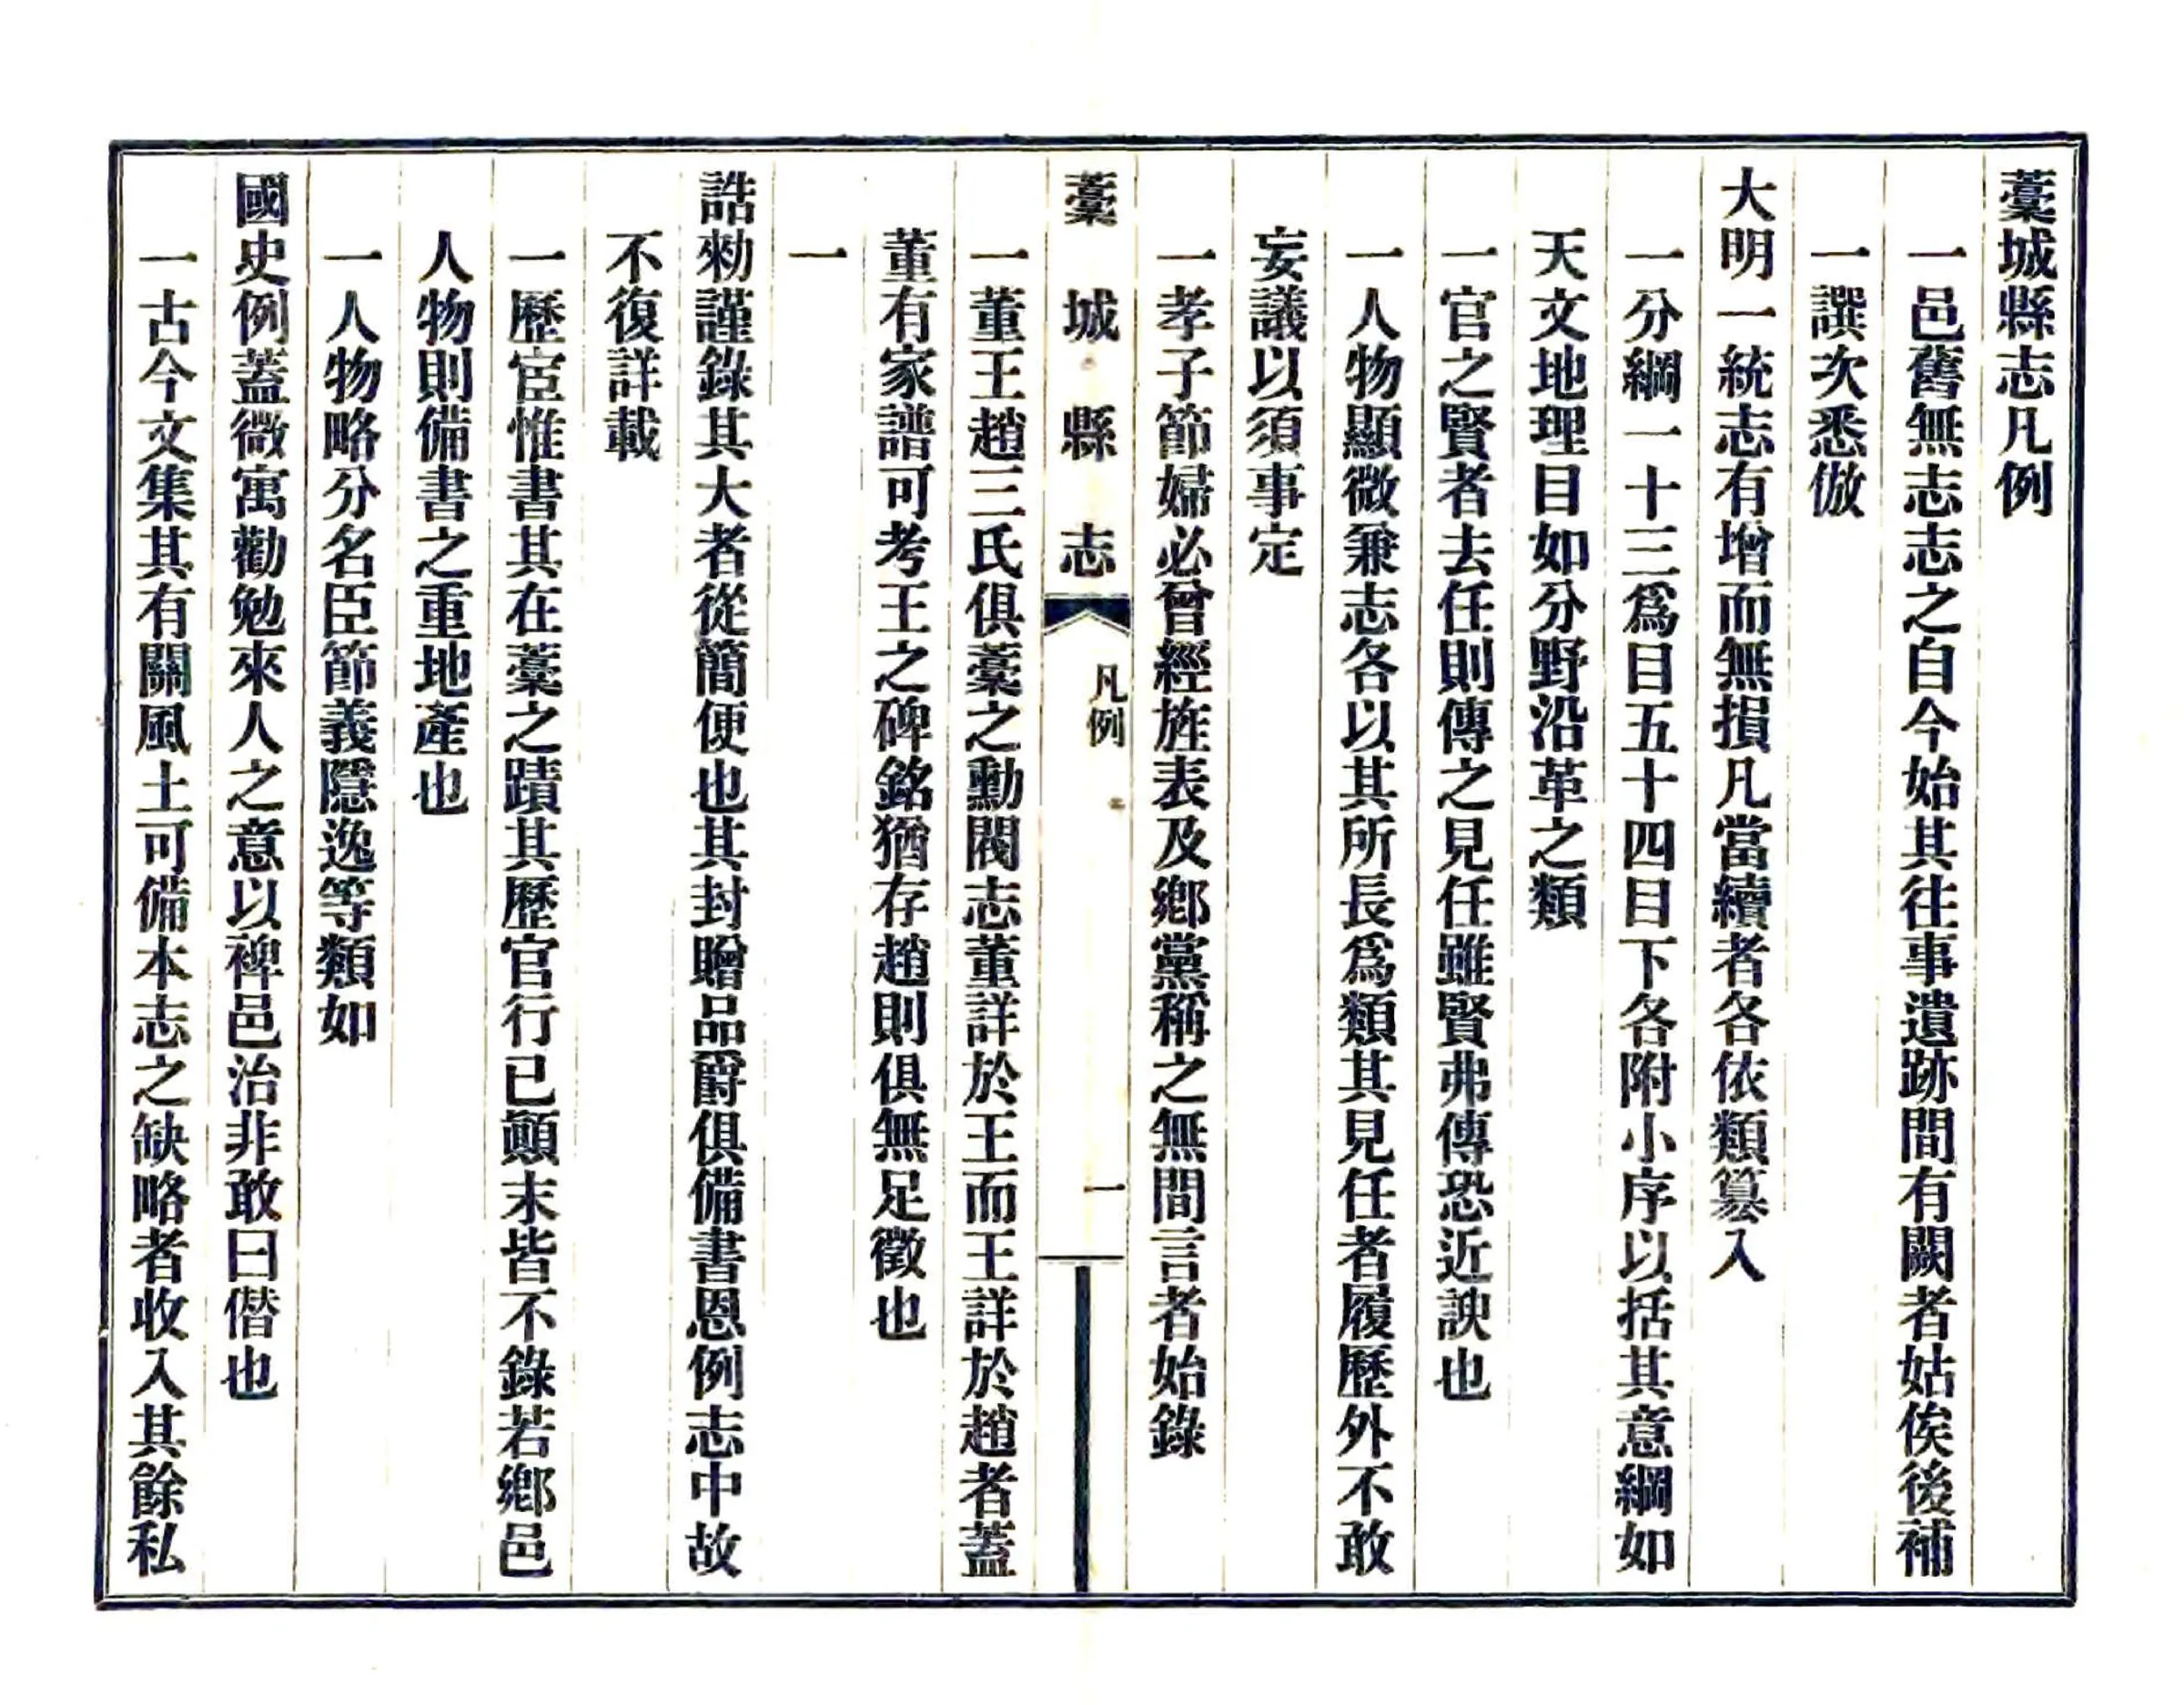 藁城縣志凡例
一邑舊無志志之自今始其往事遺跡間有闕者姑俟後補
一譔次悉倣
大明一統志有增而無損凡當續者各依類簒入
一分綱一十三爲目五十四目下各附小序以括其意綱如
天文地理目如分野沿革之類
一官之賢者去任則傳之見任雖賢弗傳恐近諛也
一人物顯微兼志各以其所長爲類其見任者履歷外不敢
妄議以須事定
一孝子節婦必曾經旌表及鄉黨稱之無間言者始錄
藁城縣志
凡例
一
一董王趙三氏俱藁之勳閥志董詳於王而王詳於趙者蓋
董有家譜可考王之碑銘猶存趙則俱無足徵也
一
誥勑謹錄其大者從簡便也其封贈品爵俱備書恩例志中故
不復詳載
一歷宦惟書其在藁之蹟其歷官行已顚末皆不錄若鄉邑
人物則備書之重地產也
一人物略分名臣節義隱逸等類如
國史例蓋微寓勸勉來人之意以裨邑治非敢曰僭也
一古今文集其有關風土可備本志之缺略者收入其餘私